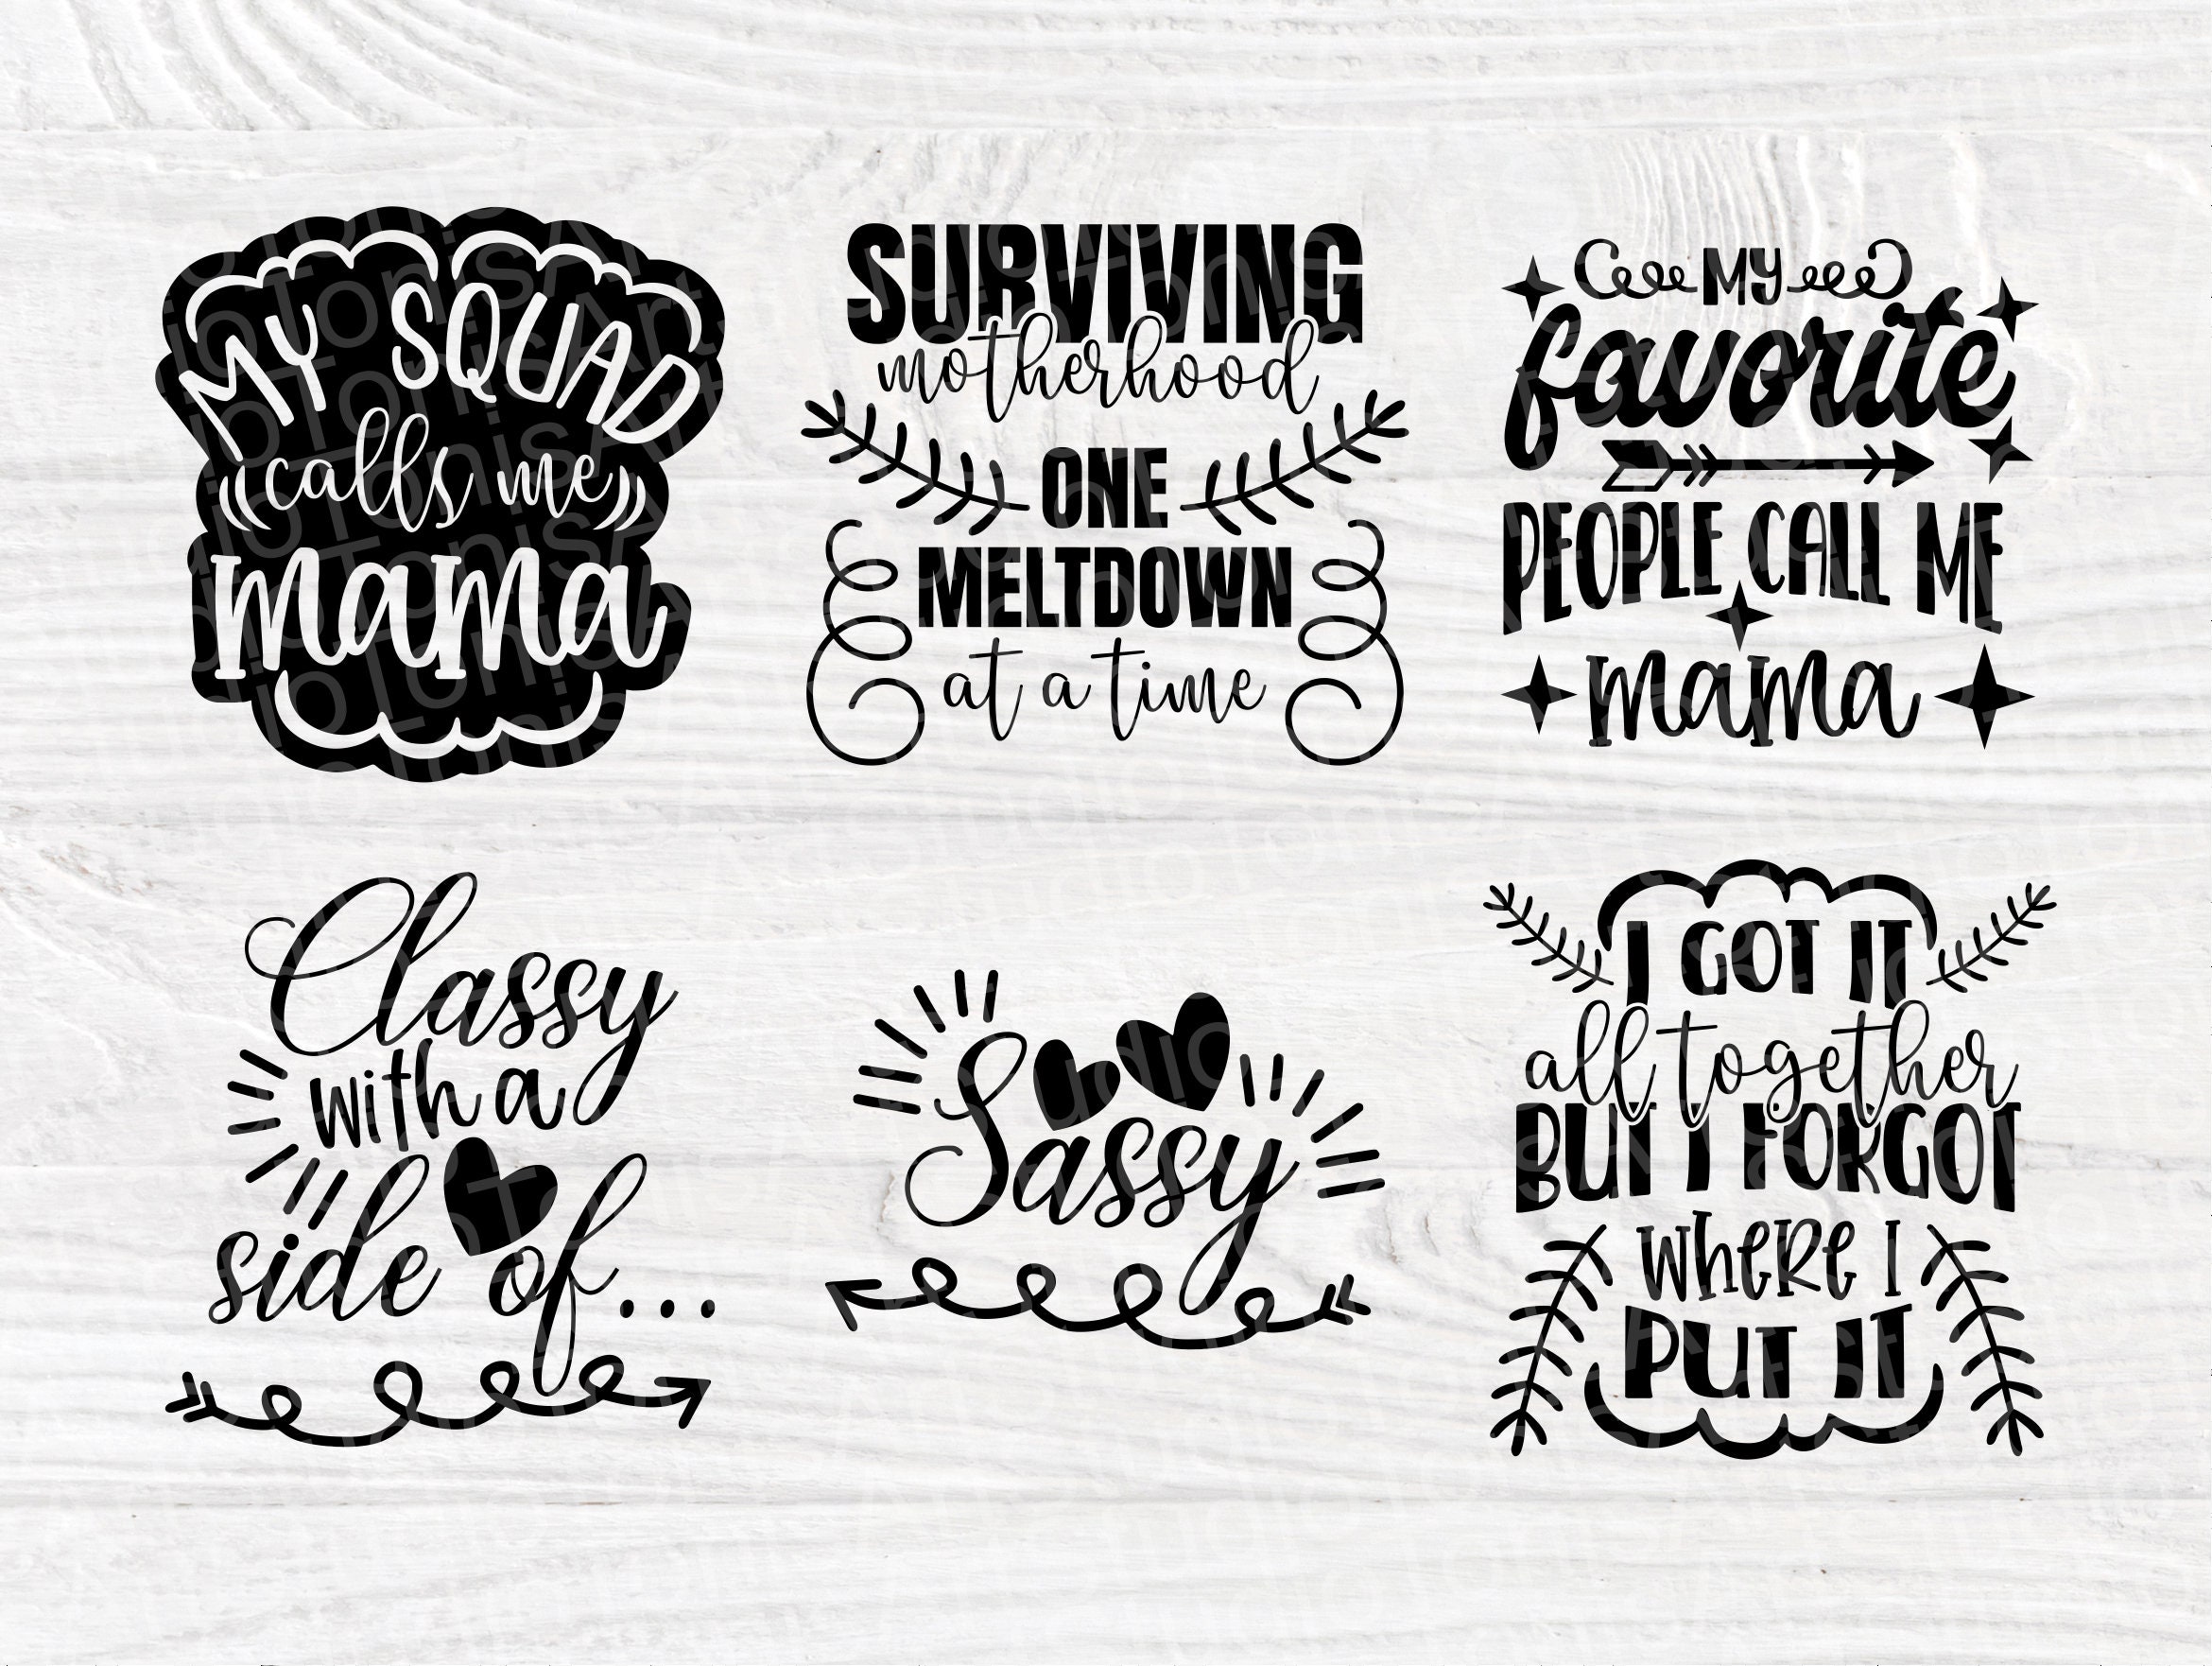 MY SQUAD
calls me
mama
SURVIVING
motherhood
ONE
MELTDOWN
at a time
MY
favorite
PEOPLE CALL ME
mama
Classy
with a
side of...
Sassy
I GOT IT
all together
BUT I FORGOT
WHERE I
PUT IT